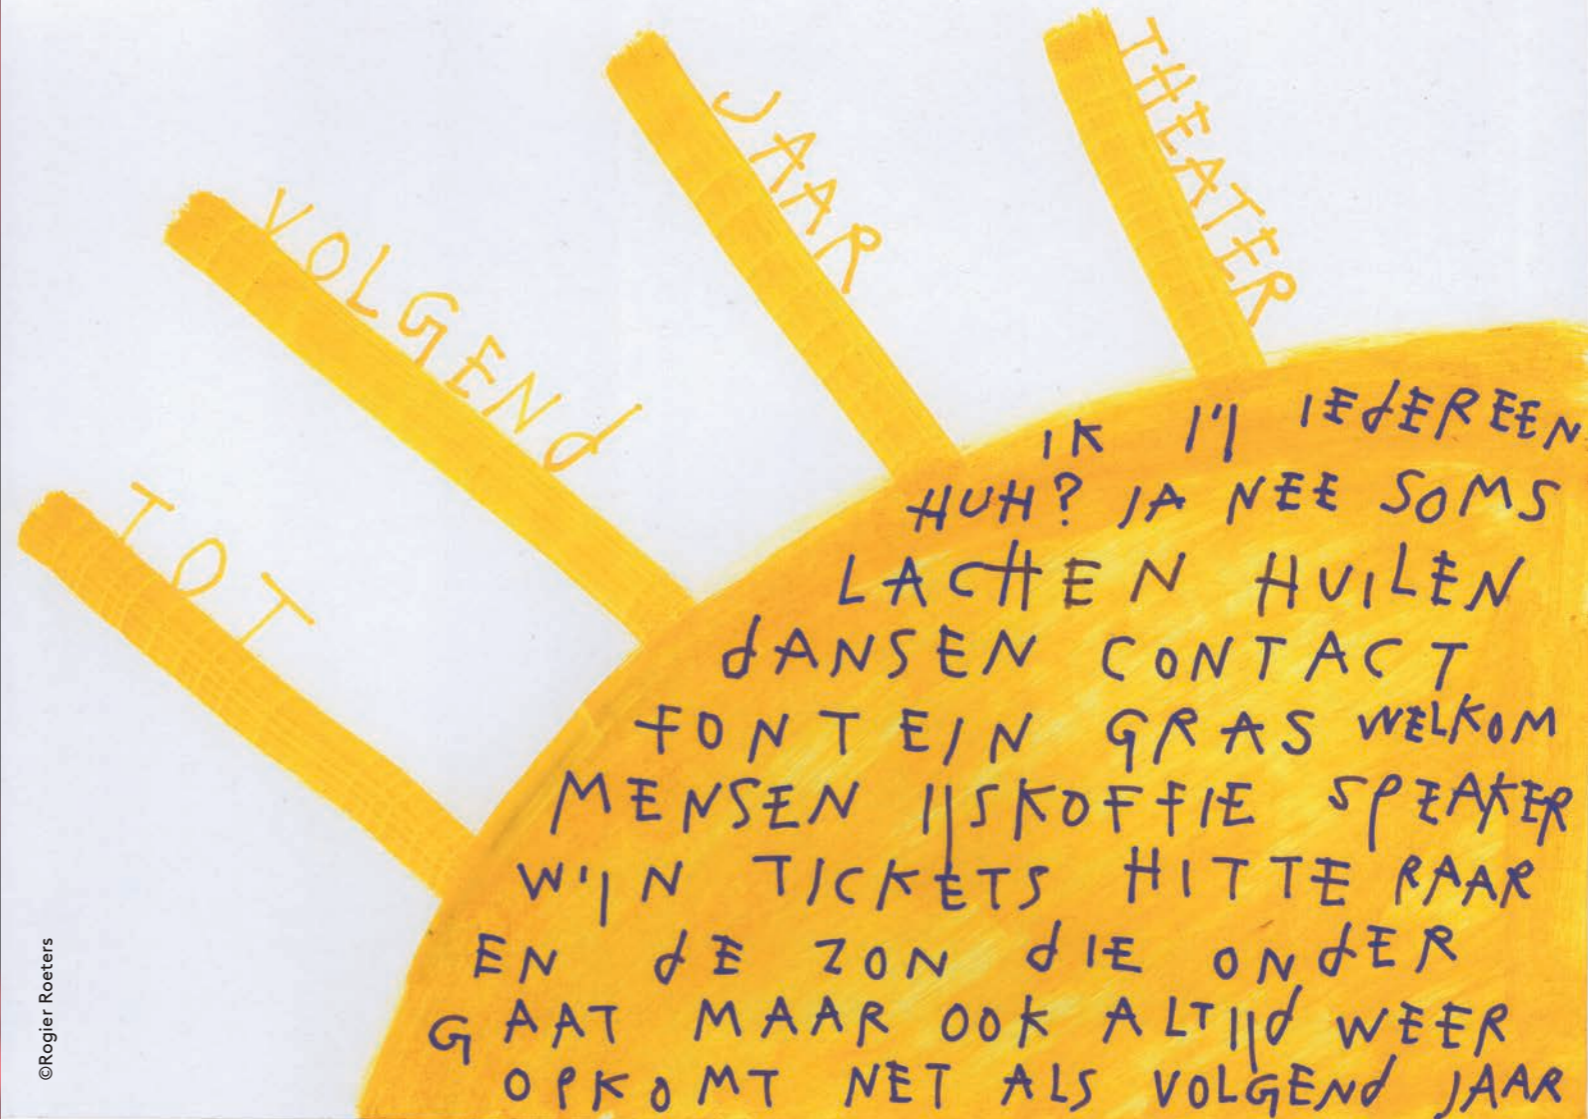 TOT
VOLGENd
JAAR
THEATER
IK IIJ IEdEREEN
HUH? JA NEE SOMS
LACHEN HUILEN
dANSEN CONTACT
FONTEIN GRAS WELKOM
MENSEN IJSKOFFIE SPEAKER
WIJN TICKETS HITTE RAAR
EN dE ZON dIE ONdER
GAAT MAAR OOK ALTIJd WEER
OPKOMT NET ALS VOLGENd JAAR
©Rogier Roeters